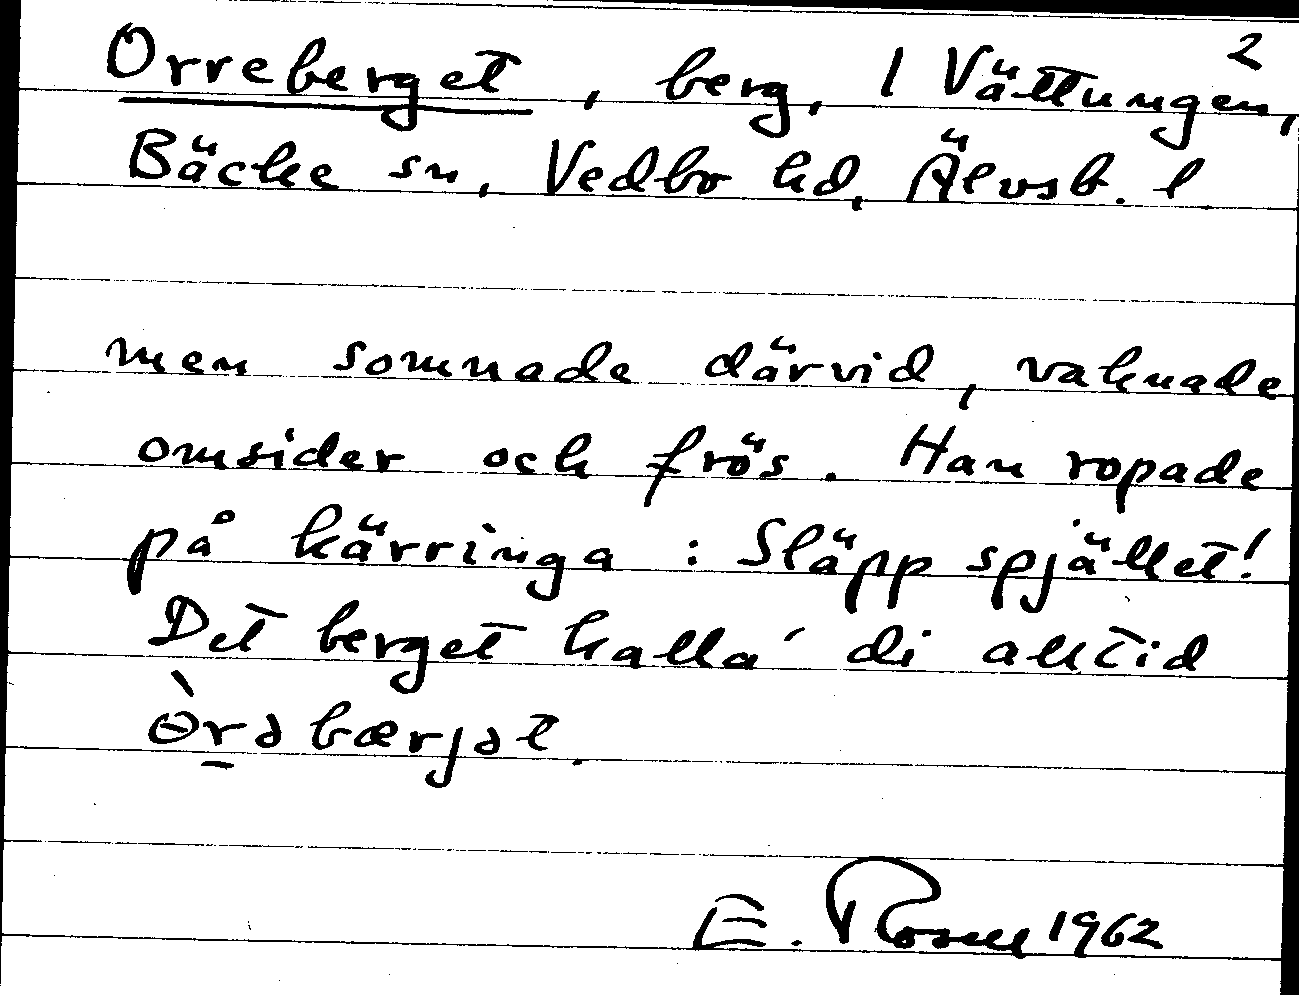 2
Orreberget, berg, 1 Vättungen,
Bäcke sn, Vedbo hd, Älvsb. l
men somnade därvid, vaknade
omsider och frös. Han ropade
på kärringa: Släpp spjället!
Det berget kalla' di alltid
ɵ̀r̲əbærjət.
E. Rosell 1962